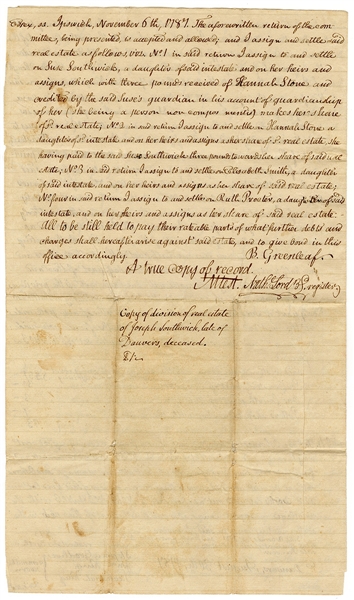 Essex, ss. Ipswich, November 6th, 1787. The aforewritten return of the com
mittee, being presented, is accepted and allowed; and I assign and settle said
real estate as follows viz. No. 1 in said return I assign to and settle
on Suse Southwick, a daughter of said intestate and on her heirs and
assigns, which with three pounds received of Hannah Stone and
credited by the said Suse's guardian in his account of guardianship
of her (she being a person non compos mentis) makes her share
of sd real estate; No. 2 in said return I assign to and settle on Hannah Stone a
daughter of sd intestate and on her heirs and assigns as her share of sd real estate, she
having paid to the said Suse Southwick three pounds to make her share of said real
estate; No. 3 in said return I assign to and settle on Elisabeth Smith, a daughter
of said intestate, and on her heirs and assigns as her share of said real estate;
No. four in said return I assign to and settle on Ruth Procter, a daughter of said
intestate and on her heirs and assigns as her share of said real estate:
All to be still held to pay their rateable parts of what further debts and
charges shall hereafter arise against said estate, and to give bond in this
office accordingly.
B. Greenleaf.
A true copy of record.
Attest. Nathl Lord register
Copy of division of real estate
of Joseph Southwick, late of
Danvers, deceased.
8/2